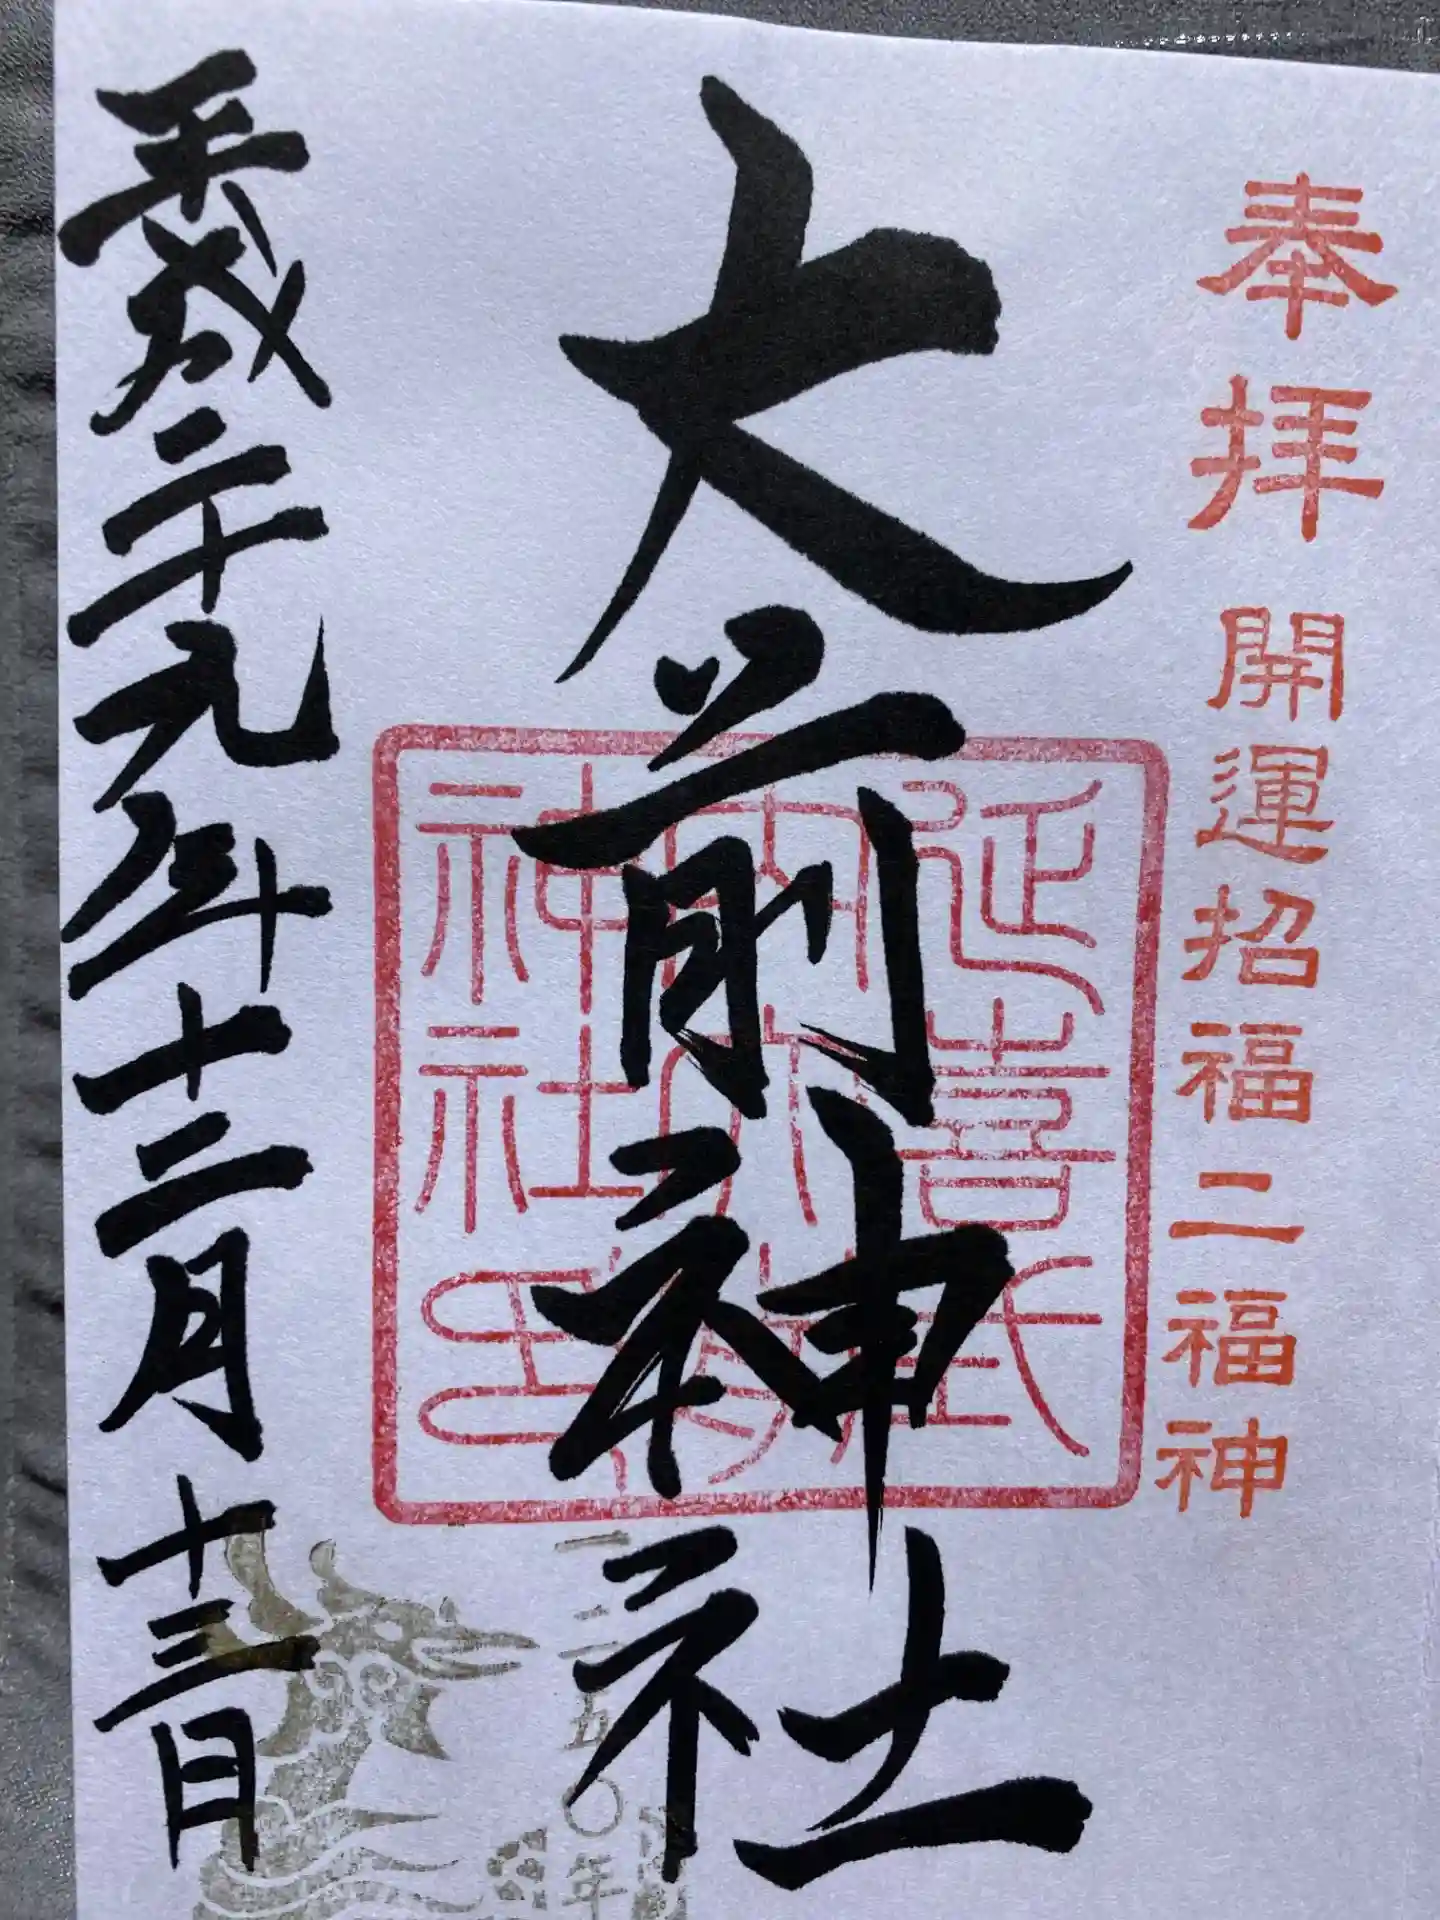 奉拝 開運招福二福神
大前神社
延喜式内大前神社
一二五〇年
平成二十九年十二月十三日